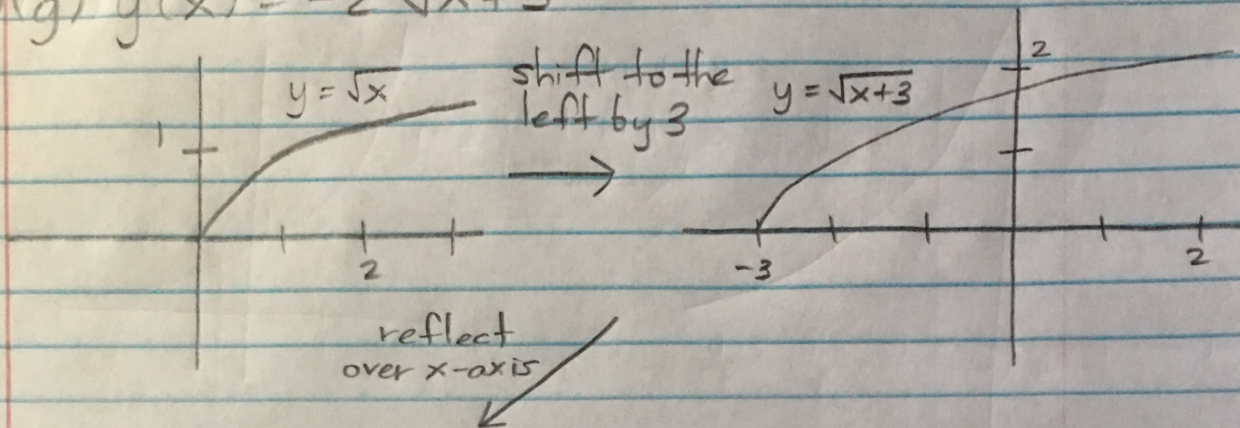 y = √x
1
2
shift to the
left by 3
y = √x+3
2
-3
2
reflect
over x-axis